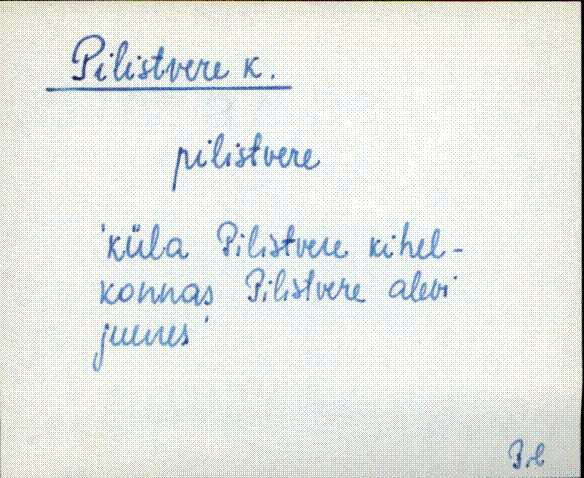 Pilistvere k.
pilistvere
'küla Pilistvere kihel-
konnas Pilistvere alevi
juures'